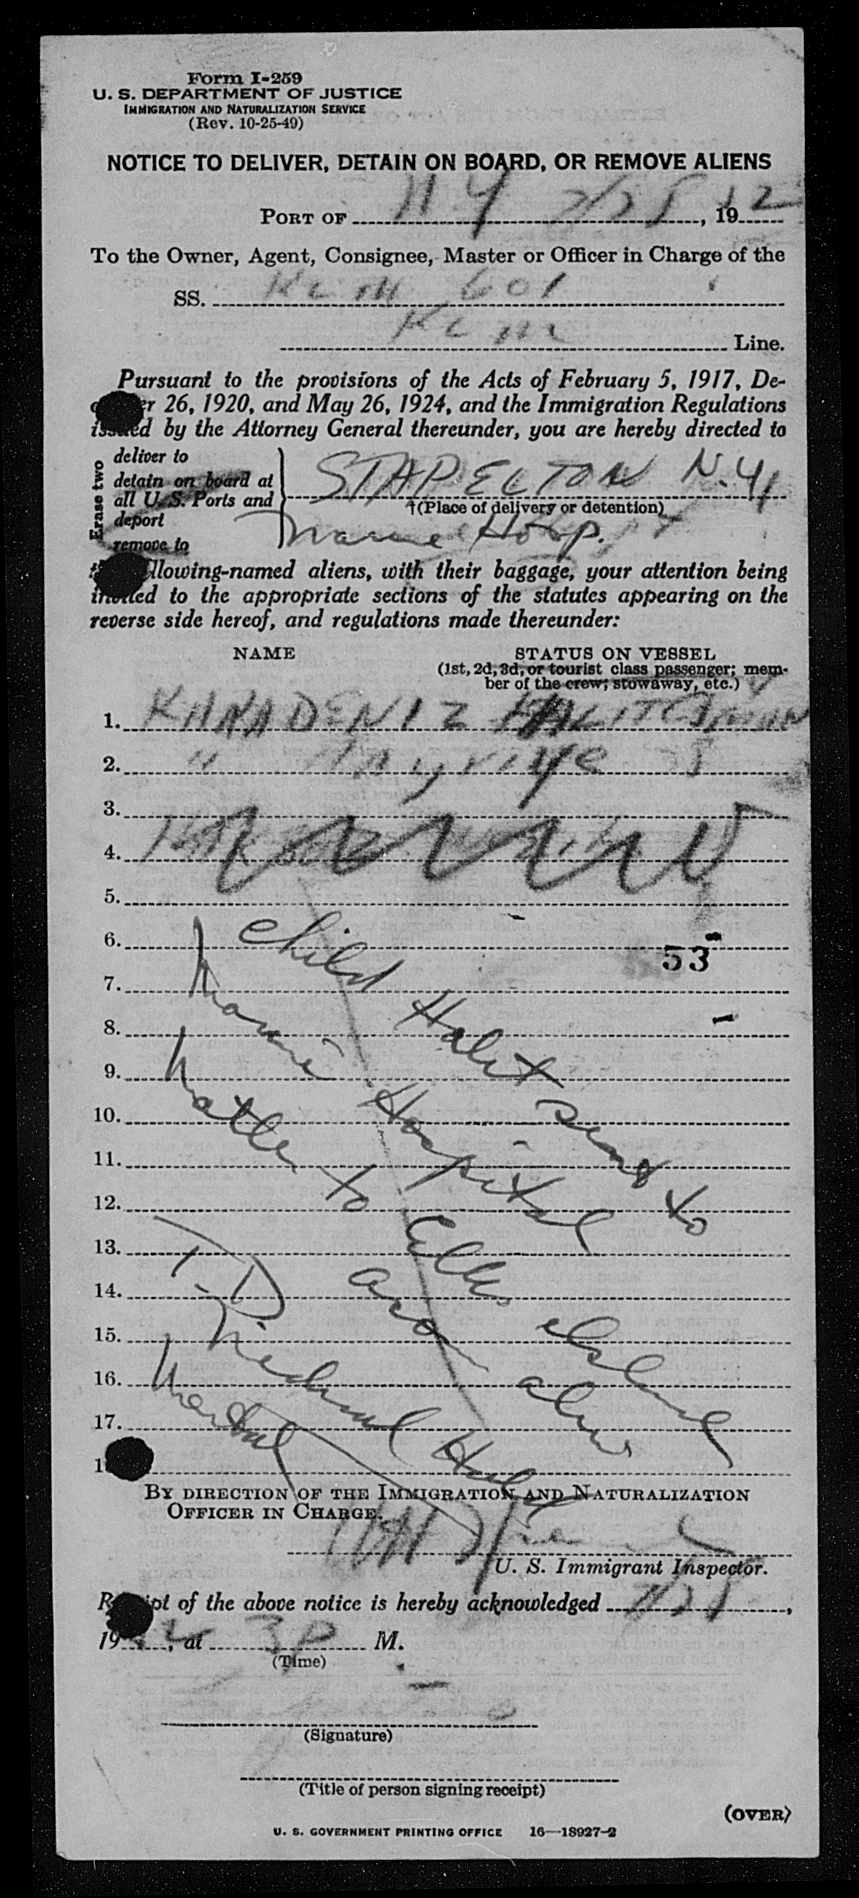 Form I-259
U. S. DEPARTMENT OF JUSTICE
IMMIGRATION AND NATURALIZATION SERVICE
(Rev. 10-25-49)
NOTICE TO DELIVER, DETAIN ON BOARD, OR REMOVE ALIENS
PORT OF N Y 7/28, 1952
To the Owner, Agent, Consignee, Master or Officer in Charge of the
SS. KLM 601
KLM Line.
Pursuant to the provisions of the Acts of February 5, 1917, De-
r 26, 1920, and May 26, 1924, and the Immigration Regulations
issued by the Attorney General thereunder, you are hereby directed to
Erase two
deliver to
detain on board at
all U. S. Ports and
deport
remove to
STAPELTON N.Y.
†(Place of delivery or detention)
Marine Hosp.
llowing-named aliens, with their baggage, your attention being
invited to the appropriate sections of the statutes appearing on the
reverse side hereof, and regulations made thereunder:
NAME
STATUS ON VESSEL
(1st, 2d, 3d, or tourist class passenger; mem-
ber of the crew; stowaway, etc.)
1. KARADENIZ HALIT
2. "
3.
4.
5.
6.
53
7.
8.
9.
10.
11.
12.
13.
14.
15.
16.
17.
1
child Halit sent to
Marine Hospital
Mother to Ellis Island
T.D. and also
Medical Hold
Mental
BY DIRECTION OF THE IMMIGRATION AND NATURALIZATION
OFFICER IN CHARGE.
U. S. Immigrant Inspector.
Receipt of the above notice is hereby acknowledged 7/28,
1952, at 3 P M.
(Time)
(Signature)
(Title of person signing receipt)
(OVER)
U. S. GOVERNMENT PRINTING OFFICE 16—18927-2